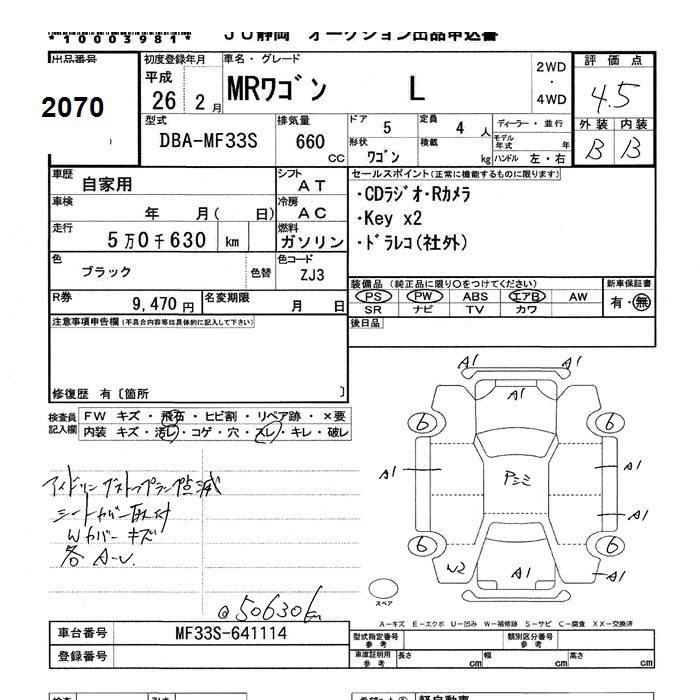 *10003981*
JU静岡 オークション出品申込書
出品番号
2070
初度登録年月
平成
26 2月
車名・グレード
MRワゴン L
2WD
・
4WD
評価点
4.5
外装 内装
B B
型式
DBA-MF33S
排気量
660
CC
ドア 5
定員 4 人
形状
ワゴン
積載
kg
ディーラー・並行
モデル
年式 年
ハンドル 左・右
車歴
自家用
シフト
AT
車検
年 月( 日)
冷房
AC
走行
5万0千630 km
燃料
ガソリン
色
ブラック
色替
色コード
ZJ3
R券
9,470円
名変期限
月 日
セールスポイント(正常に機能するものに限ります)
・CDラジオ・Rカメラ
・Key x2
・ドラレコ(社外)
装備品(純正品に限り○をつけてください)
PS PW ABS エアB AW
SR ナビ TV カワ
新車保証書
有・無
後日品
注意事項申告欄(不具合内容等は具体的に記入して下さい)
修復歴 有〔箇所 〕
検査員
記入欄
FW キズ・飛石・ヒビ割・リペア跡・×要
内装 キズ・汚レ・コゲ・穴・スレ・キレ・破レ
アイドリングストップランプ点滅
シートカバー取付
Wカバーキズ
各A-U
@50630km
A1 A1
A1
6 6
A1 A1
Pシミ
A1
6 6
W2 A1 A1
スペア
A-キズ E-エクボ U-凹み W-補修跡 S-サビ C-腐食 XX-交換済
車台番号
MF33S-641114
登録番号
型式指定番号
参考
類別区分番号
参考
車庫証明用
参考
長さ cm 幅 cm 高さ cm
軽自動車